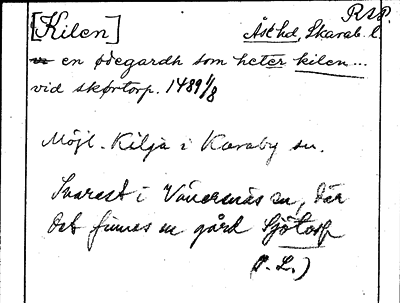 RAP.
[Kilen] Åse hd, Skarab. l.
en ødegardh som heter kilen...
vid skørtorp. 1489 1/8
Möjl. Kilja i Karaby sn.
Snarast i Vänersnäs sn, där
det finnes en gård Sjötorp
(I. L.)